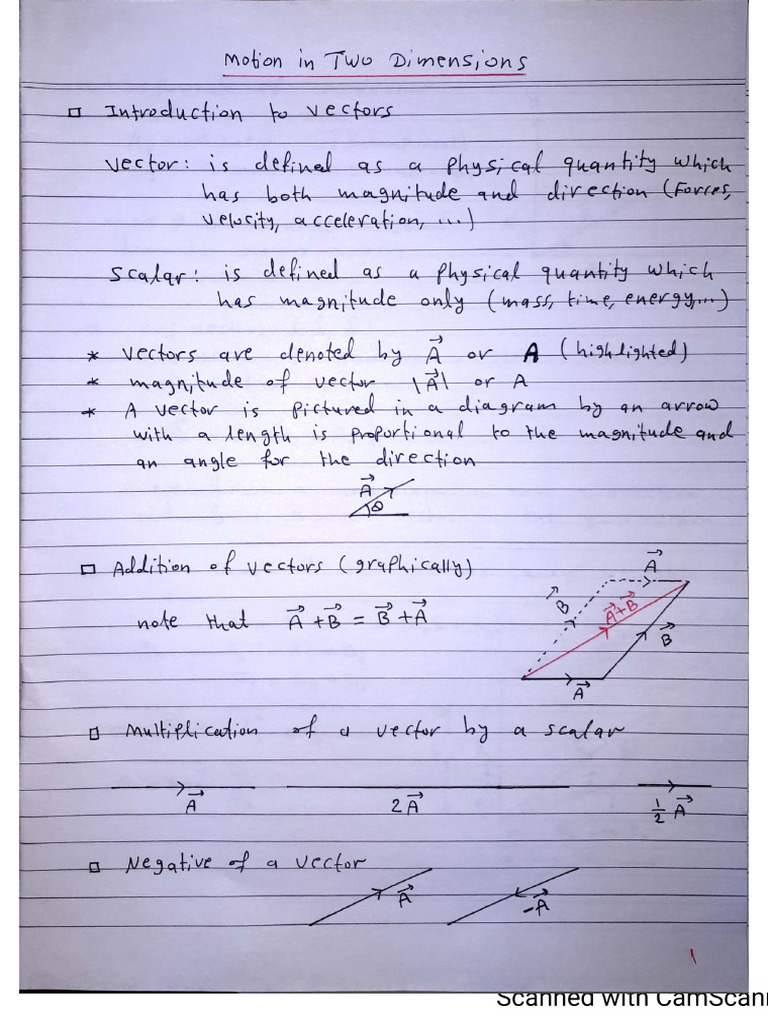 Motion in Two Dimensions
Introduction to vectors
Vector: is defined as a physical quantity which
has both magnitude and direction (Forces,
velocity, acceleration, ...)
Scalar: is defined as a physical quantity which
has magnitude only (mass, time, energy,...)
* Vectors are denoted by A⃗ or A (highlighted)
* magnitude of vector |A⃗| or A
* A vector is pictured in a diagram by an arrow
with a length is proportional to the magnitude and
an angle for the direction
A⃗
θ
Addition of vectors (graphically)
A⃗
B⃗
A⃗+B⃗
B⃗
A⃗
note that A⃗ + B⃗ = B⃗ + A⃗
Multiplication of a vector by a scalar
A⃗ 2A⃗ 1/2 A⃗
Negative of a vector
A⃗ -A⃗
1
Scanned with CamScann